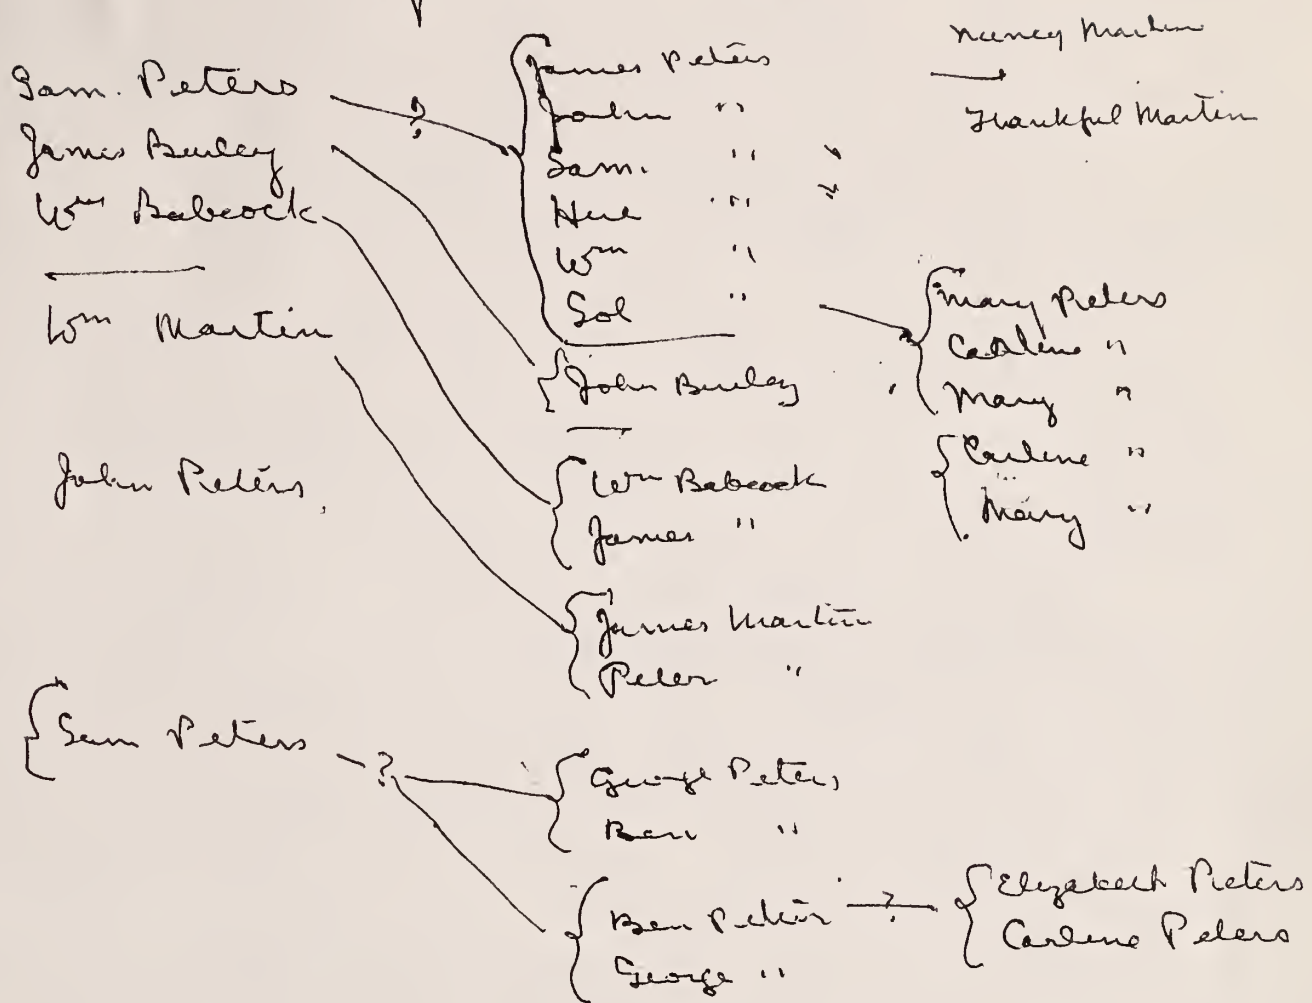 Sam. Peters
James Burley
Wm Babcock
Wm Martin
John Peters
Sam Peters
?
?
James Peters
John "
Sam. "
Hue "
Wm "
Sol "
John Burley
Wm Babcock
James "
James Martin
Peter "
George Peters
Ben "
Ben Peters
George "
?
Nancy Martin
Thankful Martin
Mary Peters
Carlene "
Mary "
Carlene "
Mary "
Elizabeth Peters
Carlene Peters